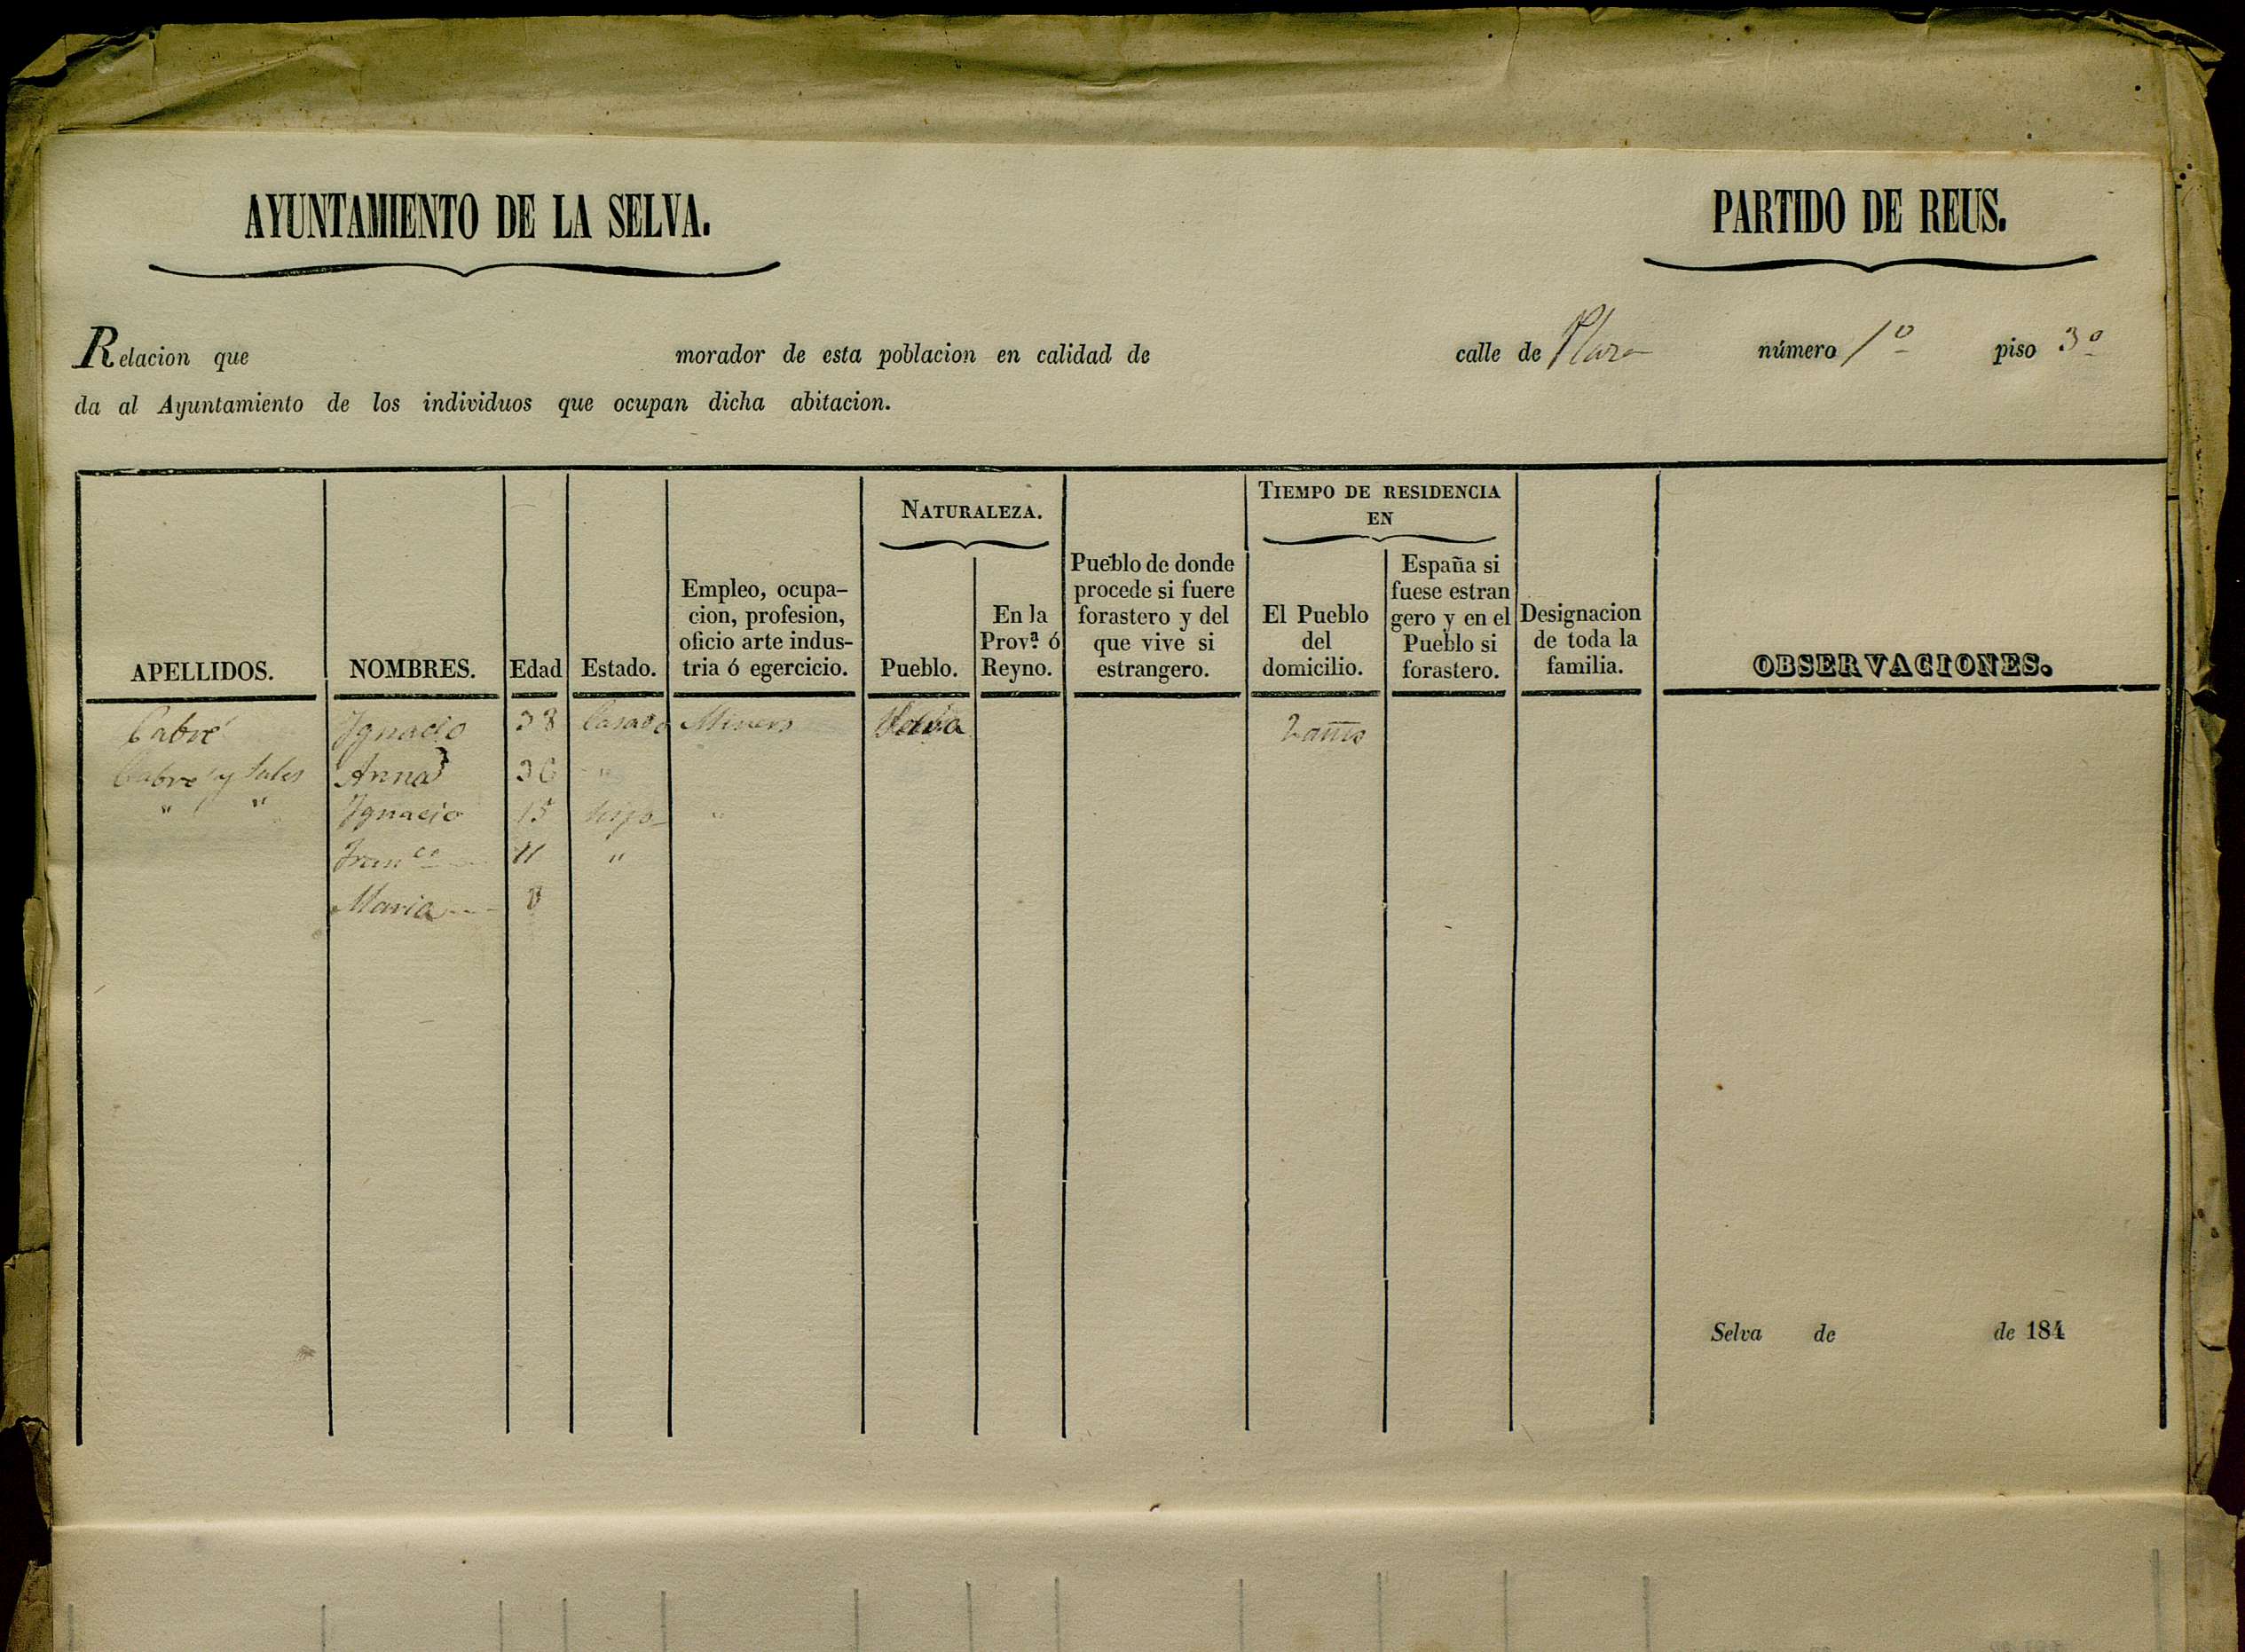 AYUNTAMIENTO DE LA SELVA.
PARTIDO DE REUS.
Relacion que morador de esta poblacion en calidad de calle de Plaza número 1º piso 3º
da al Ayuntamiento de los individuos que ocupan dicha abitacion.
NATURALEZA.
TIEMPO DE RESIDENCIA EN
APELLIDOS.
NOMBRES.
Edad
Estado.
Empleo, ocupa-
cion, profesion,
oficio arte indus-
tria ó egercicio.
Pueblo.
En la
Prov.ª ó
Reyno.
Pueblo de donde
procede si fuere
forastero y del
que vive si
estrangero.
El Pueblo
del
domicilio.
España si
fuese estran
gero y en el
Pueblo si
forastero.
Designacion
de toda la
familia.
OBSERVACIONES.
Cabré Ignacio 38 Casado Minero Selva 2 años
Cabre y Anna 36 "
" " Ignacio 15 hijo "
Franco 11 "
Maria 8
Selva de de 184